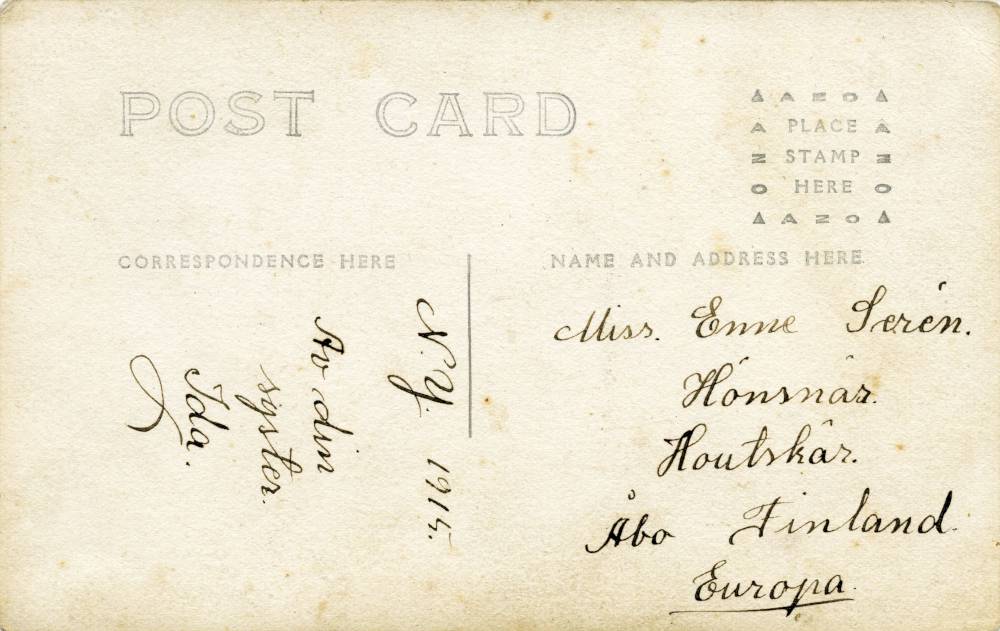 POST CARD
AZO
A PLACE A
Z STAMP Z
O HERE O
AZO
CORRESPONDENCE HERE
NAME AND ADDRESS HERE
N.Y. 1915.
Av din
syster.
Ida.
Miss. Enne Serén.
Hönsnäs.
Houtskär.
Åbo Finland.
Europa.